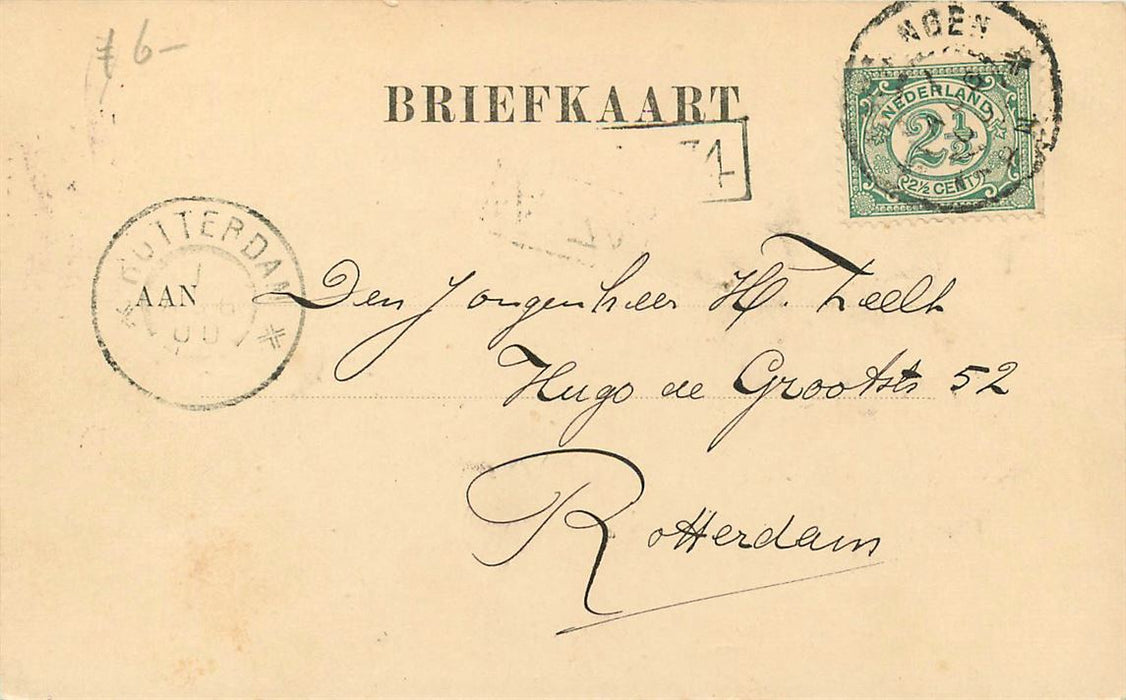 ƒ 6-
NGEN
BRIEFKAART
NEDERLAND
2½
2½ CENT
ROTTERDAM
AAN
Den Jongenheer H.
Hugo de Grootstr 52
Rotterdam